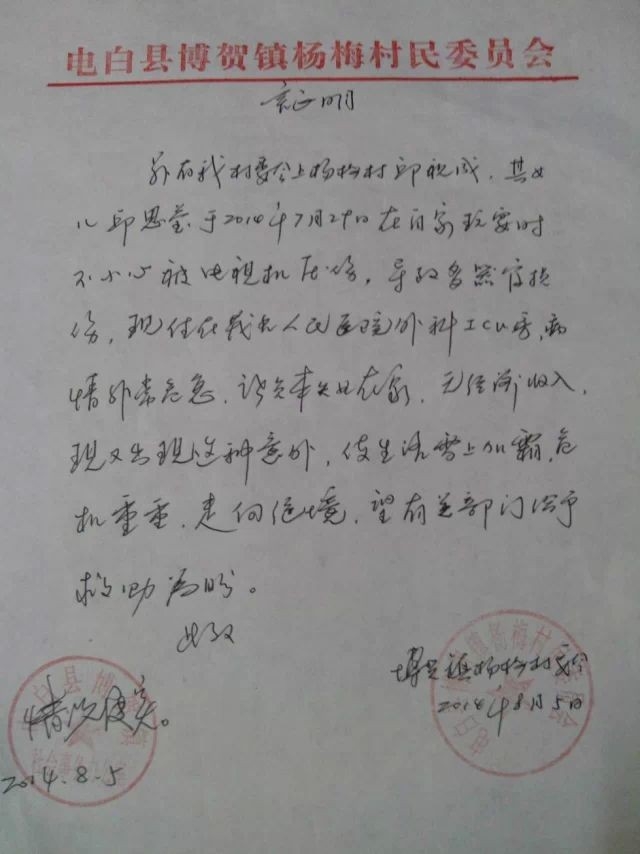 电白县博贺镇杨梅村民委员会
证明
兹有我村委会上杨梅村邱祝成，其女
儿邱思莹于2014年7月29日在自家玩耍时
不小心被电视机压伤，导致多器官损
伤，现住在茂名人民医院外科ICU房，病
情非常危急，该负本失业在家，无经济收入，
现又出现这种意外，使生活雪上加霜，危
机重重，走向绝境，望有关部门给予
救助为盼。
此致
博贺镇杨梅村委会
2014年8月5日
情况属实。
2014.8.5